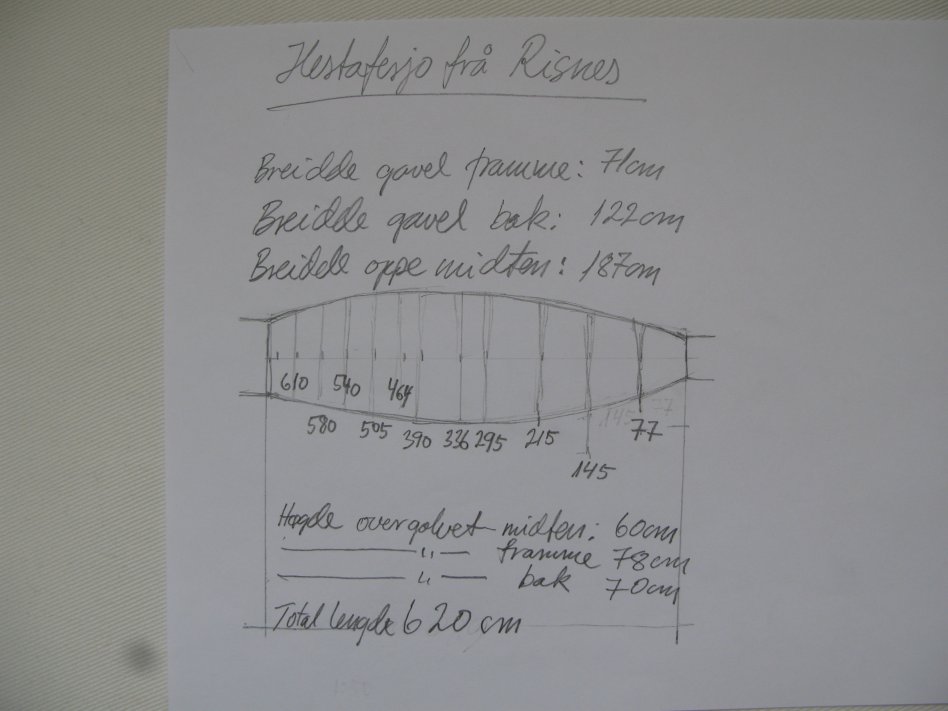 Hestafesjo frå Risnes
Breidde gavel framme: 71cm
Breidde gavel bak: 122cm
Breidde oppe midten: 187cm
610 540 464
145 77
580 505 390 336 295 215 77
145
Høgde over golvet midten: 60cm
〃 framme 78cm
〃 bak 70cm
Total lengde 620 cm